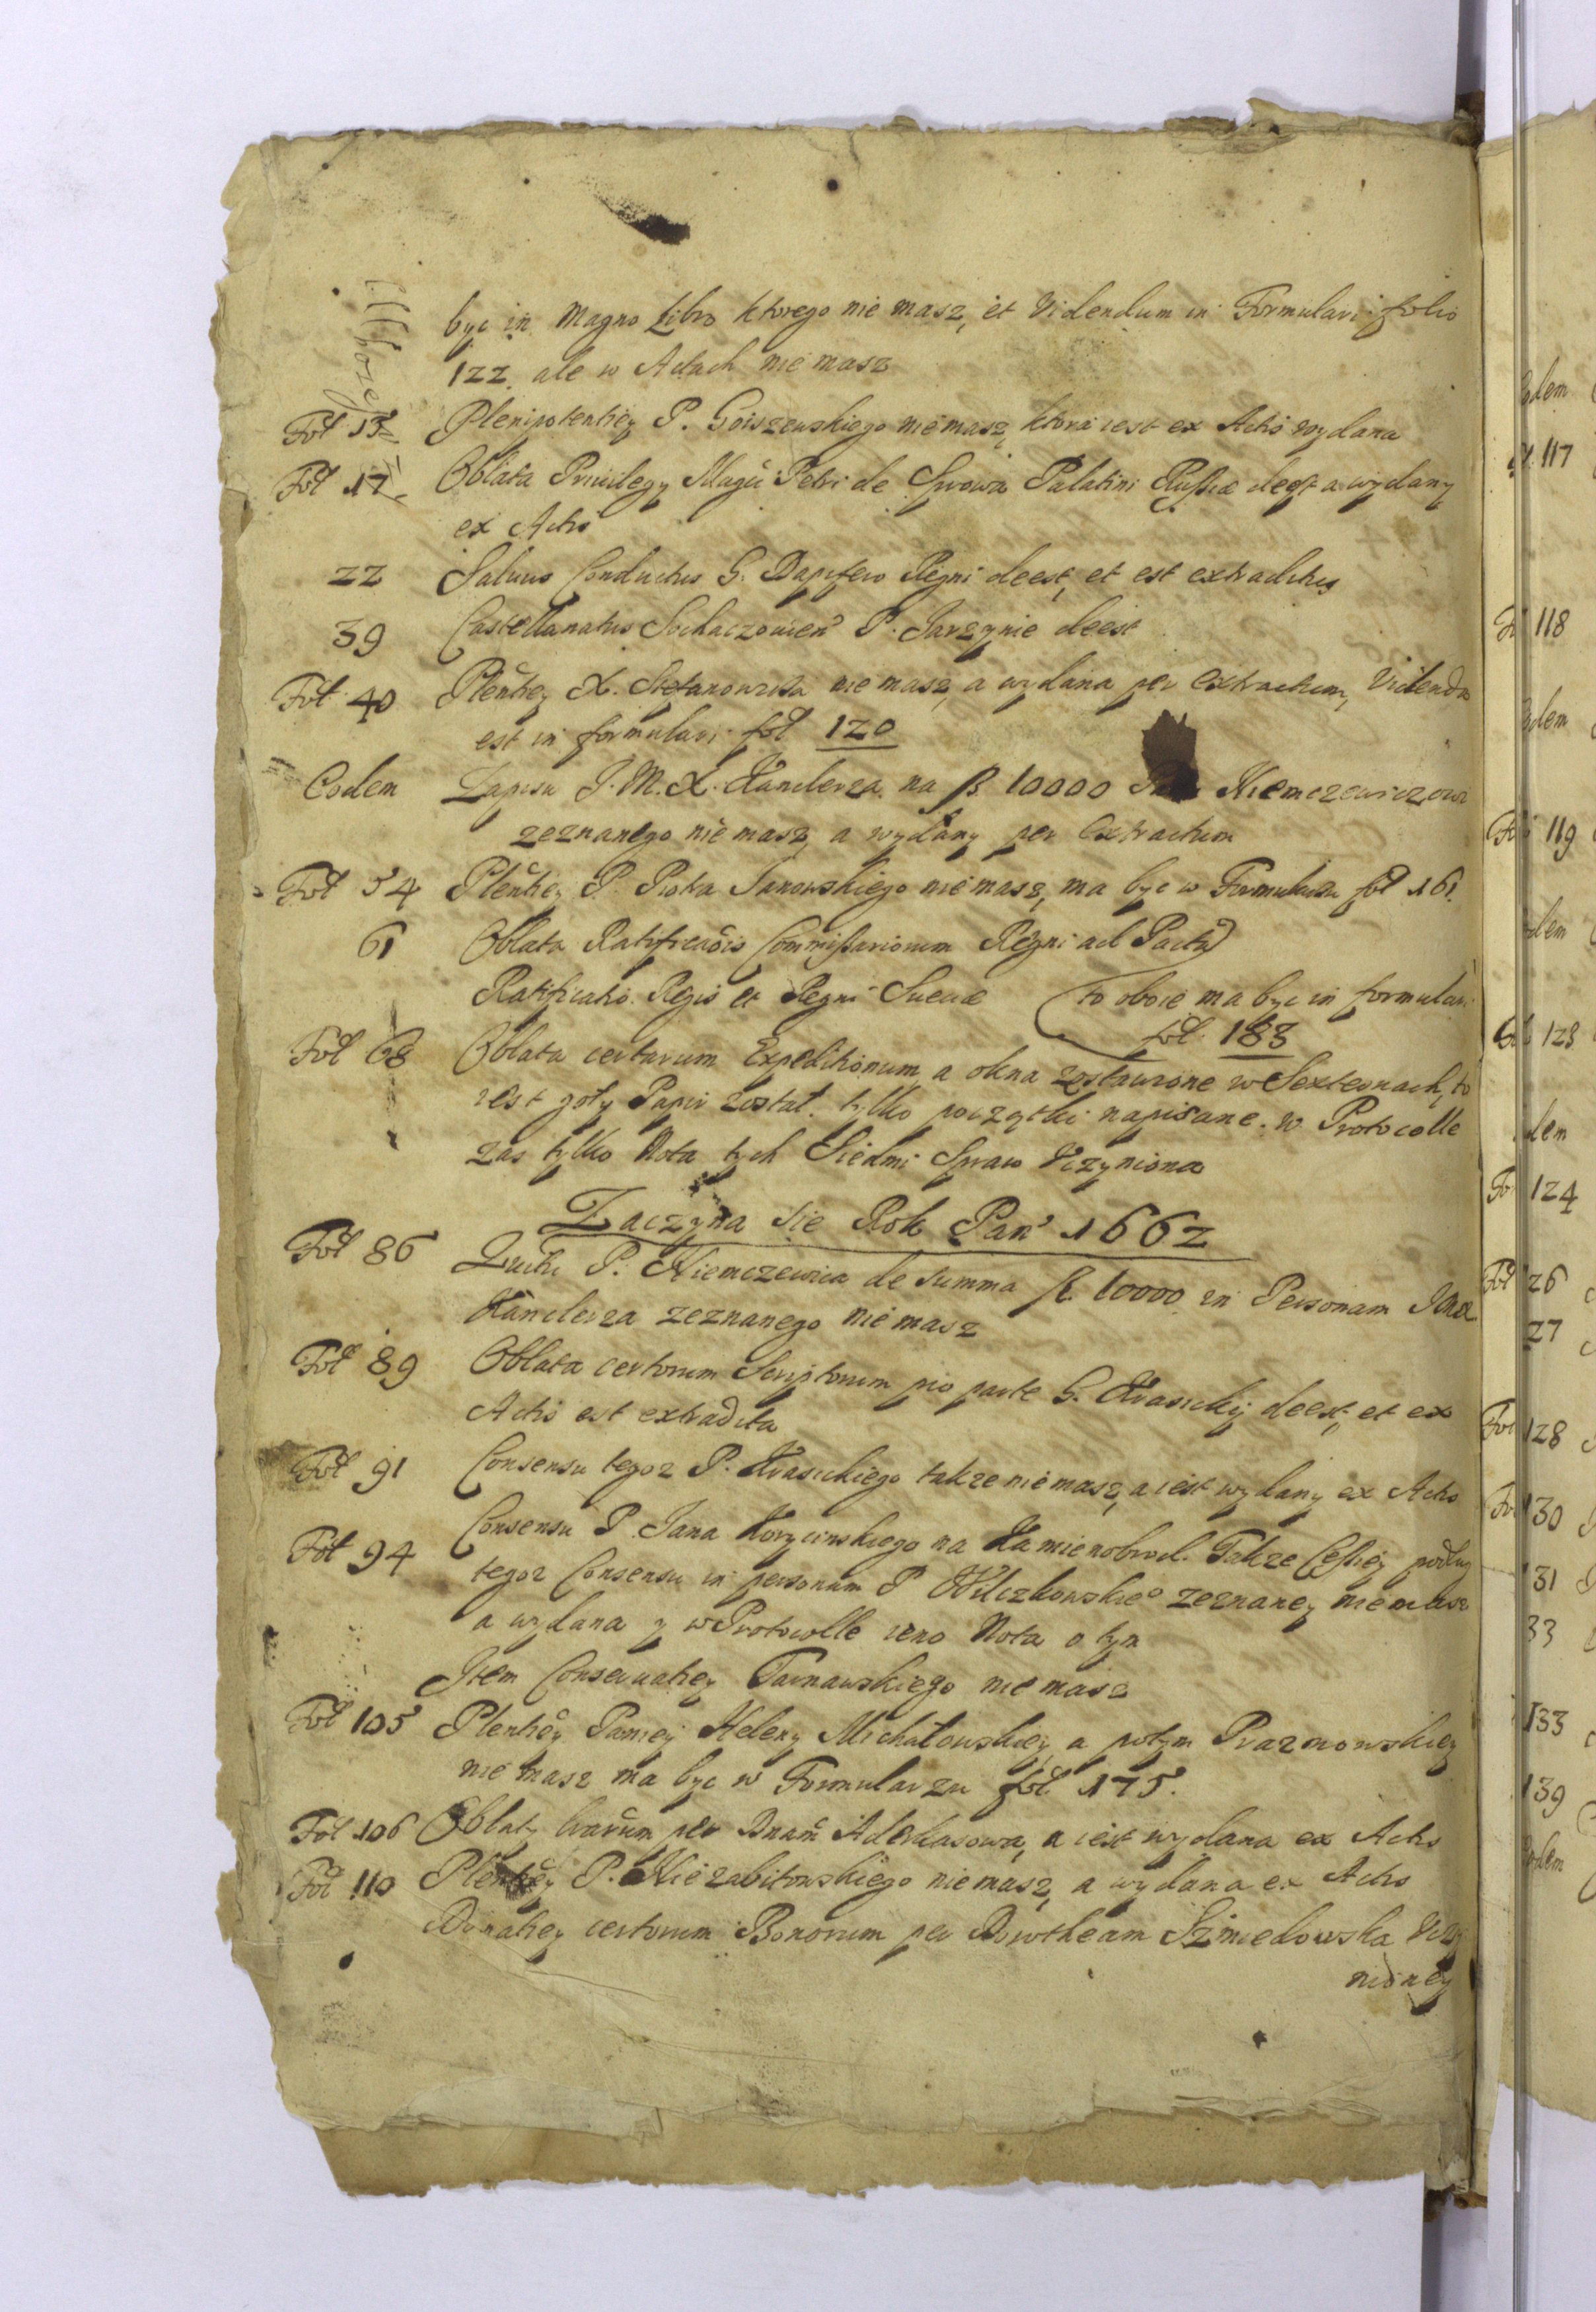 byc in Magno Libro ktorego nie masz, et Videndum in Formulari folio
122. ale w Actach nie masz
Fol 15 Plenipotentiey P. Goiszewskiego nie masz, ktora iest ex Actis wydana
Fol 17 Oblata Priuilegy Magci Petri de Palatini Russiæ deest a wydany
ex Actis
22 Saluus Conductus G. Dapifero Regni deest, et est extraditus
39 Castellanatus Sochaczouien P. Jarzynie deest
Fol 40 Plentiey X. Stefanowicza nie masz, a wydana per extractum, Videnda
est in formulari fol 120
Eodem Zapisu J. M. X. Kanclerza na fl. 10000 Niemczewiczowi
zeznanego nie masz, a wydany per Extractum
Fol 54 Plentiey P. Piotra Janowskiego nie masz, ma byc w Formularzu fol 161.
61 Oblata Ratificaōis Commissariorum Regni ad Pacta
Ratificatio Regis et Regni Sueciæ to oboie ma byc in formulari
fol. 183
Fol 68 Oblata certarum Expeditionum a okna zostawione w Sexternach, to
iest goły Papir został. tylko początki napisane. w Protocolle
zas tylko Nota tych Siedmi Spraw Vczyniona
Zaczyna Sie Rok Pan 1662
Fol 86 P. Niemczewica de Summa fl. 10000 in Personam
Kanclerza zeznanego nie masz
Fol 89 Oblata certorum Scriptorum pro parte G. Krasicky deest, et ex
Actis est extradita
Fol 91 Consensu tegoz P. Krasickiego takze nie masz, a iest wydany ex Actis
Fol 94 Consensu P. Jana Korycinskiego na Kamienobrod. Takze Cessiey podług
tegoz Consensu in personam P Wilczkowskieº zeznaney nie masz
a wydana y w Protocolle ieno Nota o tym
Item Conseruatiey Tarnawskiego nie masz
Fol 105 Plentiey Paniey Heleny Michałowskiey, a potym Prazmowskiey
nie masz ma byc w Formularzu fol 175.
Fol 106 Oblaty per Dnam Aderkasowa, a iest wydana ex Actis
Fol 110 Plentiey P. Niezabitowskiego nie masz, a wydana ex Actis
Donatiey certorum Bonorum per Dorotheam Vczy
nioney
Eodem
117
118
Eodem
119
Eodem
123
124
126
127
128
130
131
33
133
139
Eodem